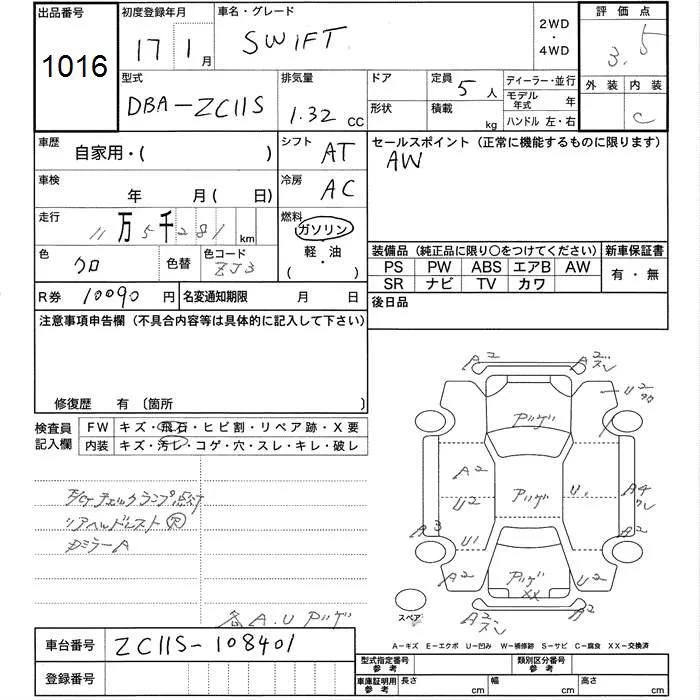 出品番号 初度登録年月 車名・グレード 評価点
1016 17 1月 SWIFT 2WD・4WD 3.5
型式 排気量 ドア 定員 5人 ディーラー・並行 外装 内装
DBA-ZC11S 1.32 CC 形状 積載 kg モデル年式 年 C
ハンドル 左・右
車歴 自家用・( ) シフト AT セールスポイント (正常に機能するものに限ります)
AW
車検 年 月( 日) 冷房 AC
走行 11万5千281 km 燃料 ガソリン
軽・油
・( )
色 クロ 色替 色コード ZJ3
装備品 (純正品に限り○をつけてください) 新車保証書
PS PW ABS エアB AW 有・無
SR ナビ TV カワ
R券 10090 円 名変通知期限 月 日 後日品
注意事項申告欄 (不具合内容等は具体的に記入して下さい)
修復歴 有 〔箇所 〕
検査員記入欄 FW キズ・飛石・ヒビ割・リペア跡・X要
内装 キズ・汚レ・コゲ・穴・スレ・キレ・破レ
チェックランプ点灯
リアヘッドレスト
ミラーA
A.U アリゲ
A2 A2 スレ
U2
アリゲ
A2 U2 アリゲ U. A4
A3 U1 A2
A2 アリゲ XX U2
スペア A2 A2
車台番号 ZC11S-108401
A-キズ E-エクボ U-凹み W-補修跡 S-サビ C-腐食 XX-交換済
登録番号 型式指定番号参考 類別区分番号参考
車庫証明用参考 長さ cm 幅 cm 高さ cm